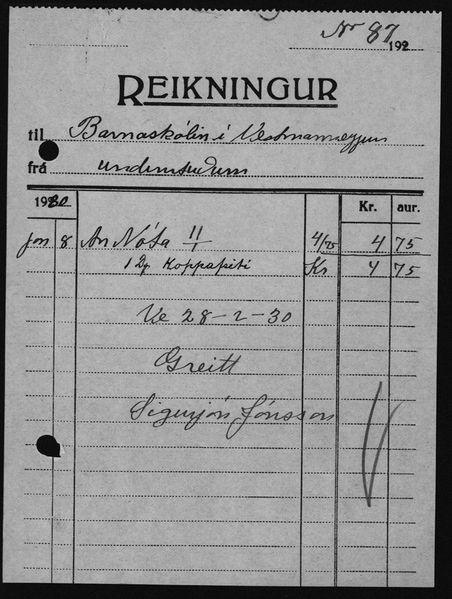 Nr 87
192
REIKNINGUR
til Barnaskólin í Vestmannaeyjum
frá undirrituðum
1930. Kr. aur.
Jan 8 An Nóta 11/1 4/75 4 75
1 Kr 4 75
Ve 28-2-30
Greitt
Sigurjón Jónsson